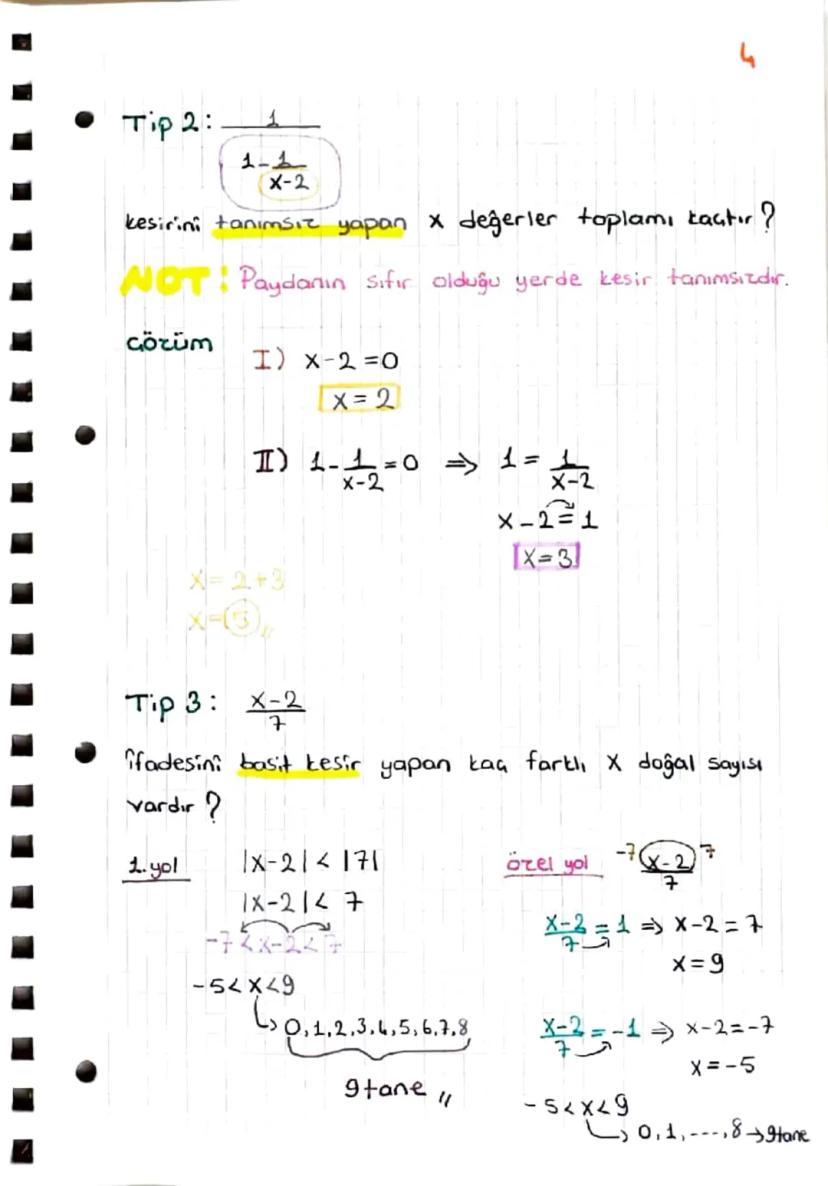 4
Tip 2: 1/(1-1/(x-2))
kesirini tanımsız yapan x değerler toplamı kaçtır?
NOT: Paydanın sıfır olduğu yerde kesir tanımsızdır.
Çözüm
I) x-2=0
x=2
II) 1-1/(x-2)=0 ⇒ 1=1/(x-2)
x-2=1
x=3
x=2+3
x=5//
Tip 3: (x-2)/7
ifadesini basit kesir yapan kaç farklı x doğal sayısı
vardır?
1.yol
|x-2|<|7|
|x-2|<7
-7<x-2<7
-5<x<9
↳ 0,1,2,3,4,5,6,7,8
9tane //
özel yol -7 (x-2)/7 7
(x-2)/7=1 ⇒ x-2=7
x=9
(x-2)/7=-1 ⇒ x-2=-7
x=-5
-5<x<9
↳ 0,1,---,8→9tane